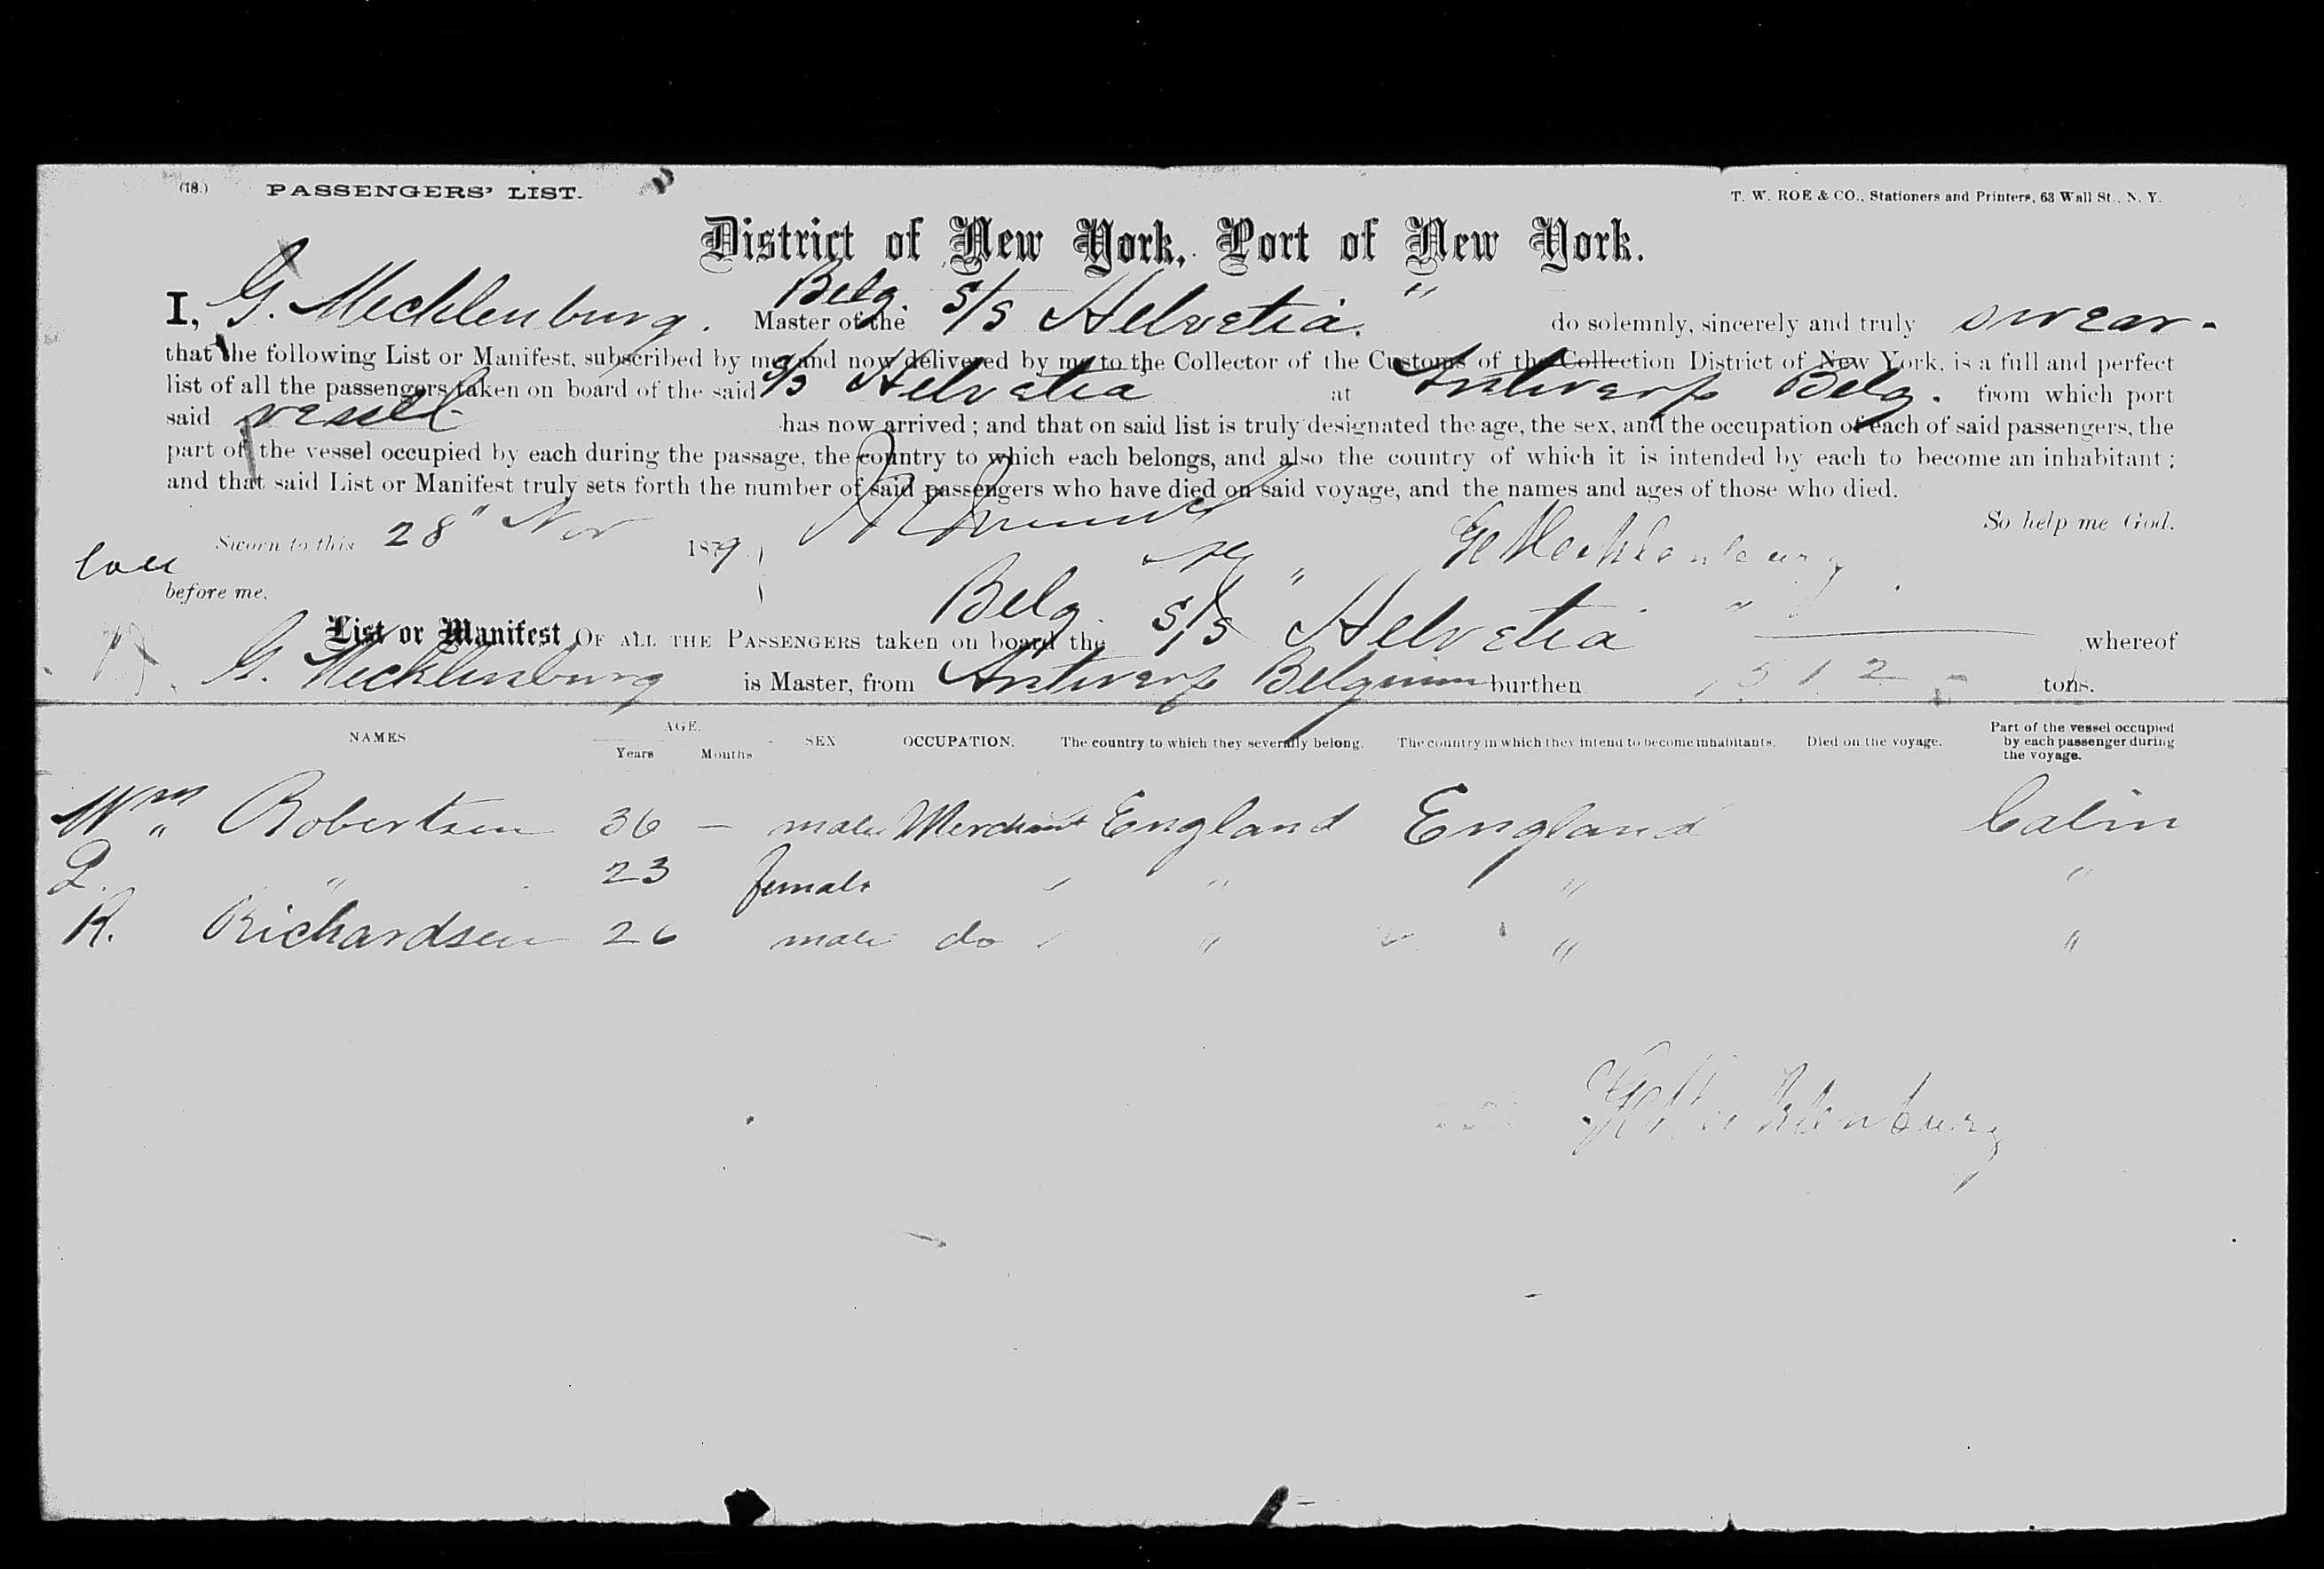 (18.) PASSENGERS' LIST. T. W. ROE & CO., Stationers and Printers, 63 Wall St., N. Y.
District of New York, Port of New York.
I, G. Mecklenburg. Master of the Belg. S/S Helvetia." do solemnly, sincerely and truly swear-
that the following List or Manifest, subscribed by me and now delivered by me to the Collector of the Customs of the Collection District of New York, is a full and perfect
list of all the passengers taken on board of the said S/S Helvetia at Antwerp Belg. from which port
said vessel has now arrived; and that on said list is truly designated the age, the sex, and the occupation of each of said passengers, the
part of the vessel occupied by each during the passage, the country to which each belongs, and also the country of which it is intended by each to become an inhabitant;
and that said List or Manifest truly sets forth the number of said passengers who have died on said voyage, and the names and ages of those who died.
So help me God.
Sworn to this 28" Nov 1879
before me. G Mecklenburg
List or Manifest OF ALL THE PASSENGERS taken on board the Belg. S/S "Helvetia" whereof
G. Mecklenburg is Master, from Antwerp Belgium burthen tons.
NAMES AGE. Years Months SEX OCCUPATION. The country to which they severally belong. The country in which they intend to become inhabitants. Died on the voyage. Part of the vessel occupied by each passenger during the voyage.
Wm " Robertson 36 — male Merchant England England Cabin
" 23 female " " "
R. Richardson 26 male do " " "
G Mecklenburg